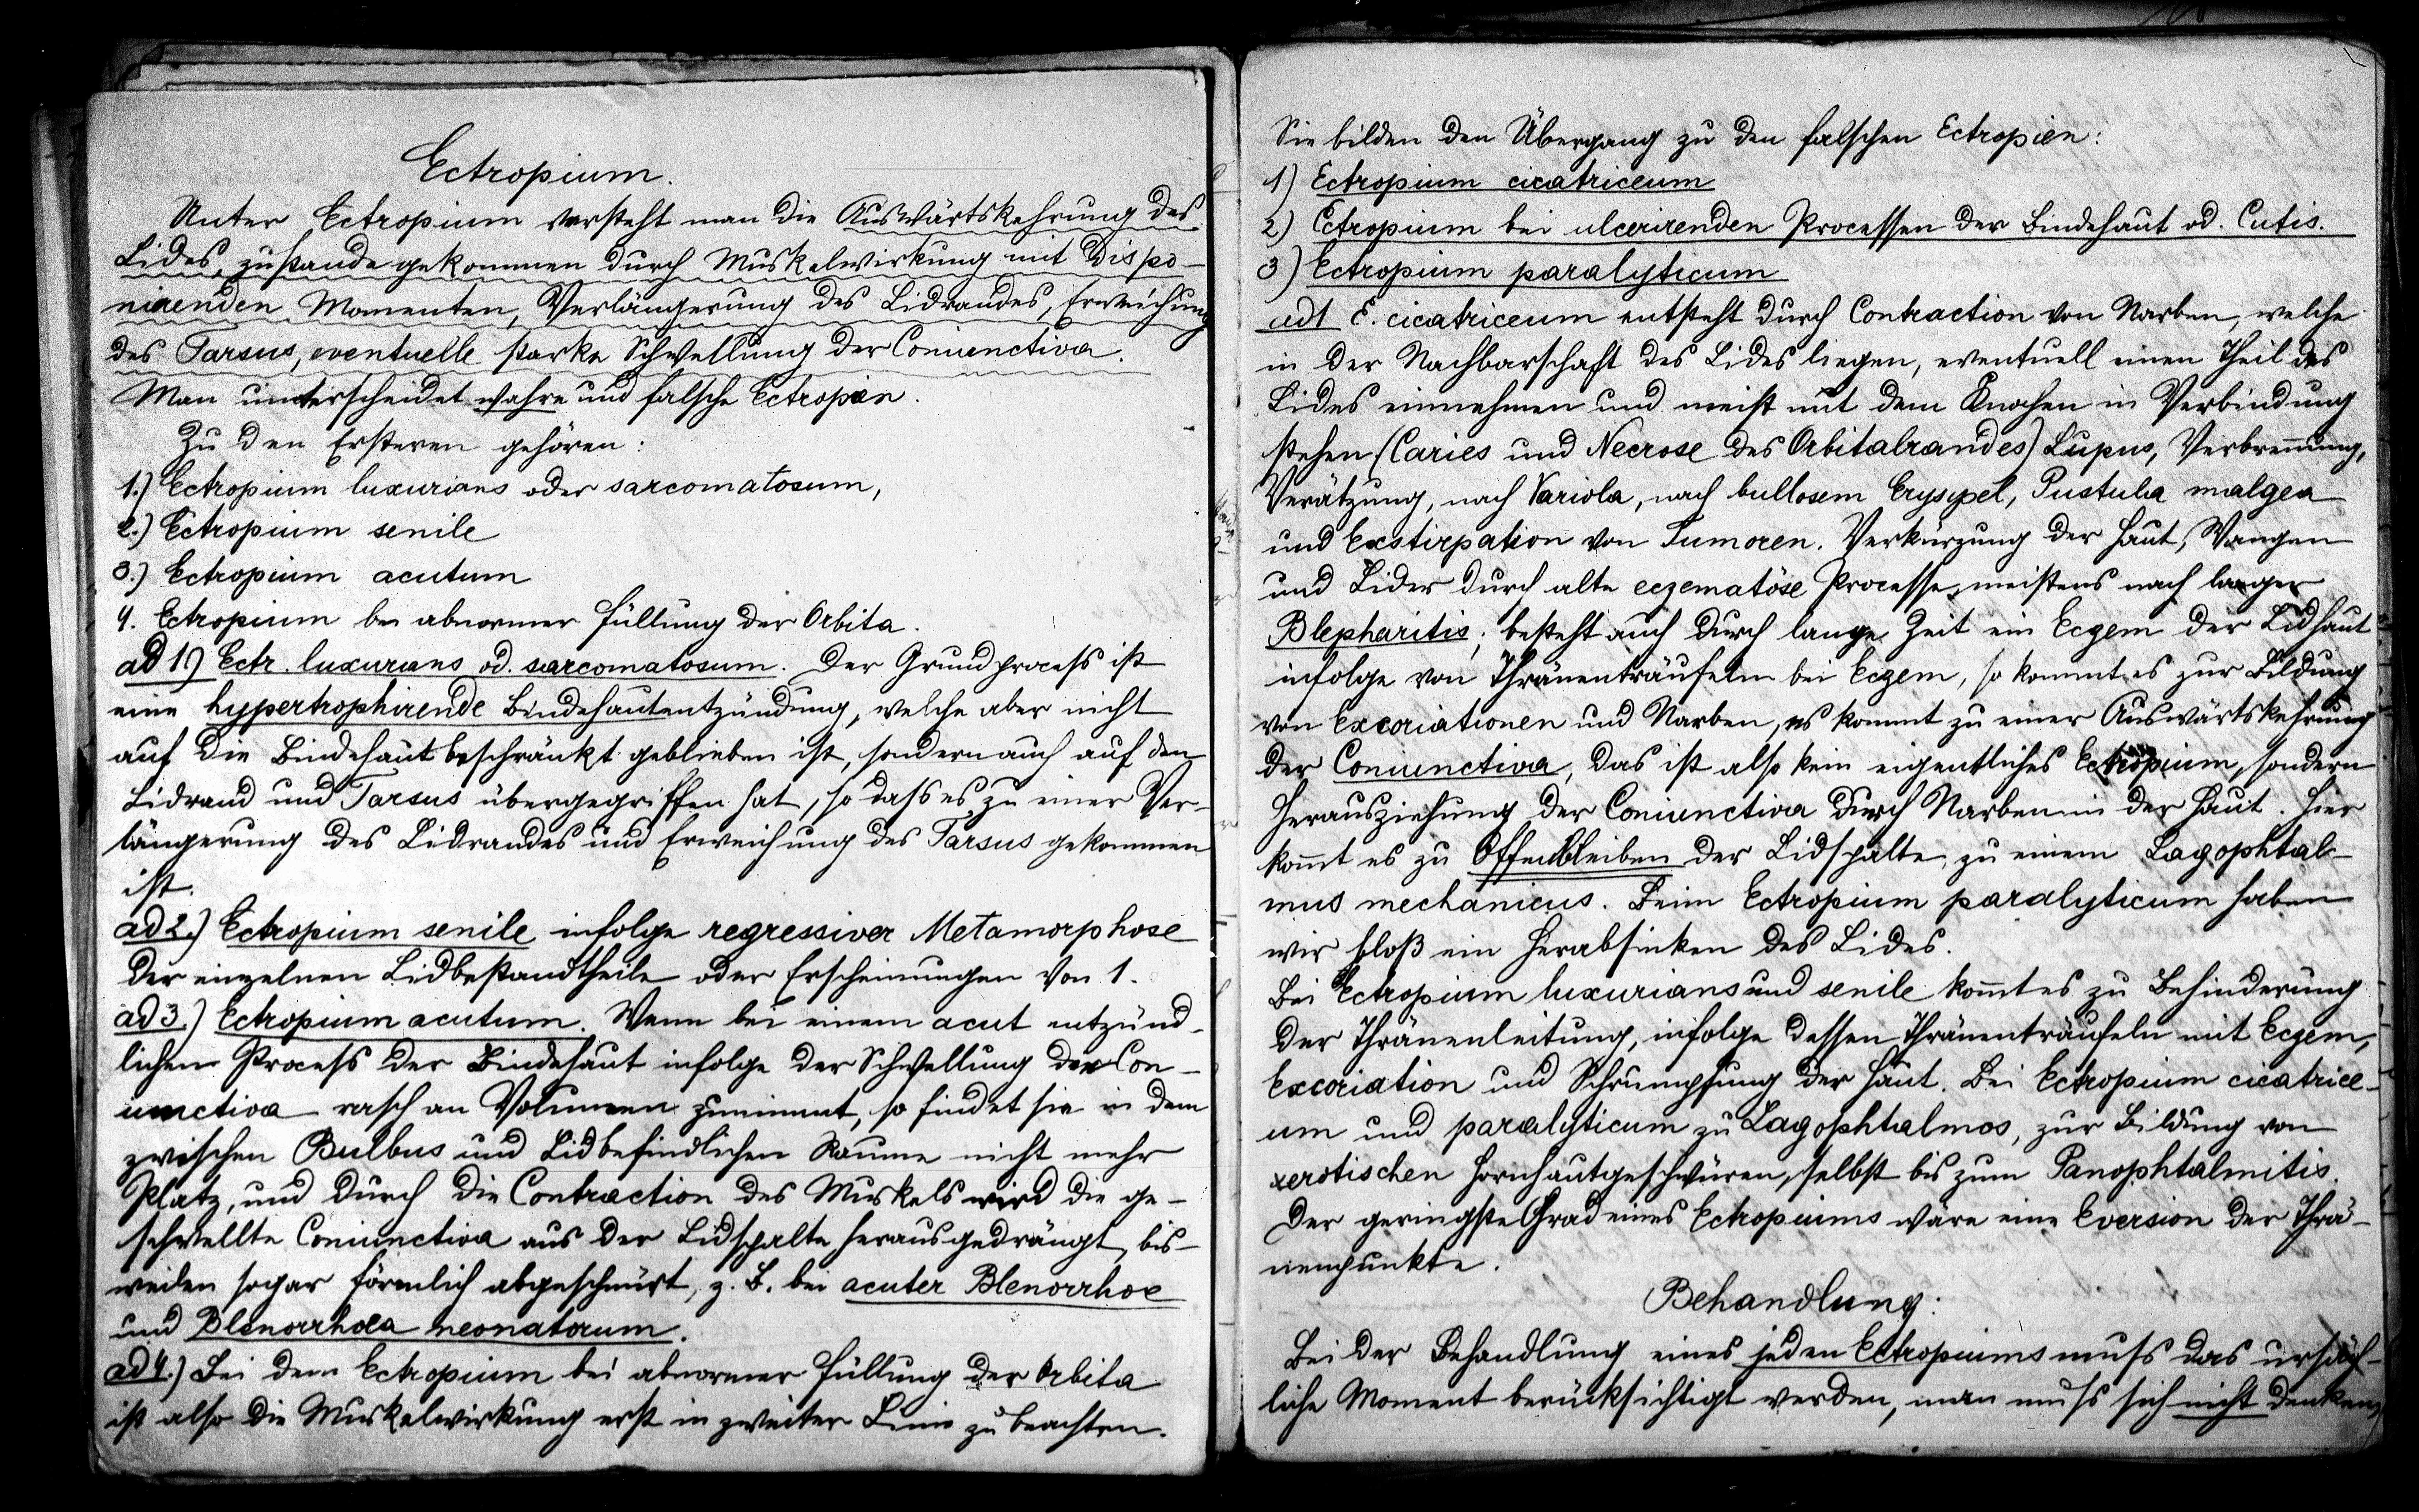 Ectropium.
Unter Ectropium versteht man die Auswärtskehrung des
Lides, zustande gekommen durch Muskelwirkung mit dispo-
nirenden Momenten, Verlängerung des Lidrandes, Erweichung
des Tarsus, eventuelle starke Schwellung der Coniunctiva.
Man unterscheidet wahre und falsche Ectropien.
Zu den Ersteren gehören:
1.) Ectropium luxurians oder sarcomatosum,
2.) Ectropium senile
3.) Ectropium acutum
4. Ectropium bei abnormer Füllung der Orbita.
ad 1.) Ectr. luxurians od. sarcomatosum. Der Grundprocess ist
eine hypertrophirende Bindehautentzündung, welche aber nicht
auf die Bindehaut beschränkt geblieben ist, sondern auch auf den
Lidrand und Tarsus übergegriffen hat, so dass es zu einer Ver-
längerung des Lidrandes und Erweichung des Tarsus gekommen
ist.
ad 2.) Ectropium senile infolge regressiver Metamorphose
der einzelnen Lidbestandtheile oder Erscheinungen von 1.
ad 3.) Ectropium acutum. Wenn bei einem acut entzünd-
lichen Process der Bindehaut infolge der Schwellung der Con-
iunctiva rasch an Volumen zunimmt, so findet sie in dem
zwischen Bulbus und Lid befindlichen Raume nicht mehr
Platz, und durch die Contraction des Muskels wird die ge-
schwellte Coniunctiva aus der Lidspalte herausgedrängt, bis-
weilen sogar förmlich abgeschnürt, z. B. bei acuter Blenorrhoe
und Blenorrhoea neonatorum.
ad 4.) Bei dem Ectropium bei abnormer Füllung der Orbita
ist also die Muskelwirkung erst in zweiter Linie zu beachten.
Sie bilden den Übergang zu den falschen Ectropien:
1) Ectropium cicatriceum
2) Ectropium bei ulcerirenden Processen der Bindehaut od. Cutis.
3) Ectropium paralyticum
ad 1 E. cicatriceum entsteht durch Contraction von Narben, welche
in der Nachbarschaft des Lides liegen, eventuell einen Theil des
Lides einnehmen und meist mit dem Knochen in Verbindung
stehen (Caries und Necrose des Orbitalrandes) Lupus, Verbrennung,
Verätzung, nach Variola, nach bullosem Erysypel, Pustula malgea
und Exstirpation von Tumoren. Verkürzung der Haut, Wangen
und Lider durch alte eczematöse Processe, meistens nach langer
Blepharitis; besteht auch durch lange Zeit ein Eczem der Lidhaut
infolge von Thränenträufeln bei Eczem, so kommt es zur Bildung
von Excoriationen und Narben, es kommt zu einer Auswärtskehrung
der Coniunctiva, das ist also kein eigentliches Ectropium, sondern
Herausziehung der Coniunctiva durch Narben in der Haut. Hier
kommt es zu Offenbleiben der Lidspalte, zu einem Lagophtal-
mus mechanicus. Beim Ectropium paralyticum haben
wir bloß ein Herabsinken des Lides.
Bei Ectropium luxurians und senile kommt es zu Behinderung
der Thränenleitung, infolge dessen Thränenträufeln mit Eczem,
Excoriation und Schrumpfung der Haut. Bei Ectropium cicatrice-
um und paralyticum zu Lagophtalmos, zur Bildung von
xerotischen Hornhautgeschwüren, selbst bis zum Panophtalmitis.
Der geringste Grad eines Ectropiums wäre eine Eversion der Thrä-
nenpunkte.
Behandlung:
Bei der Behandlung eines jeden Ectropiums muss das ursäch-
liche Moment berücksichtigt werden, man muss sich nicht denken,